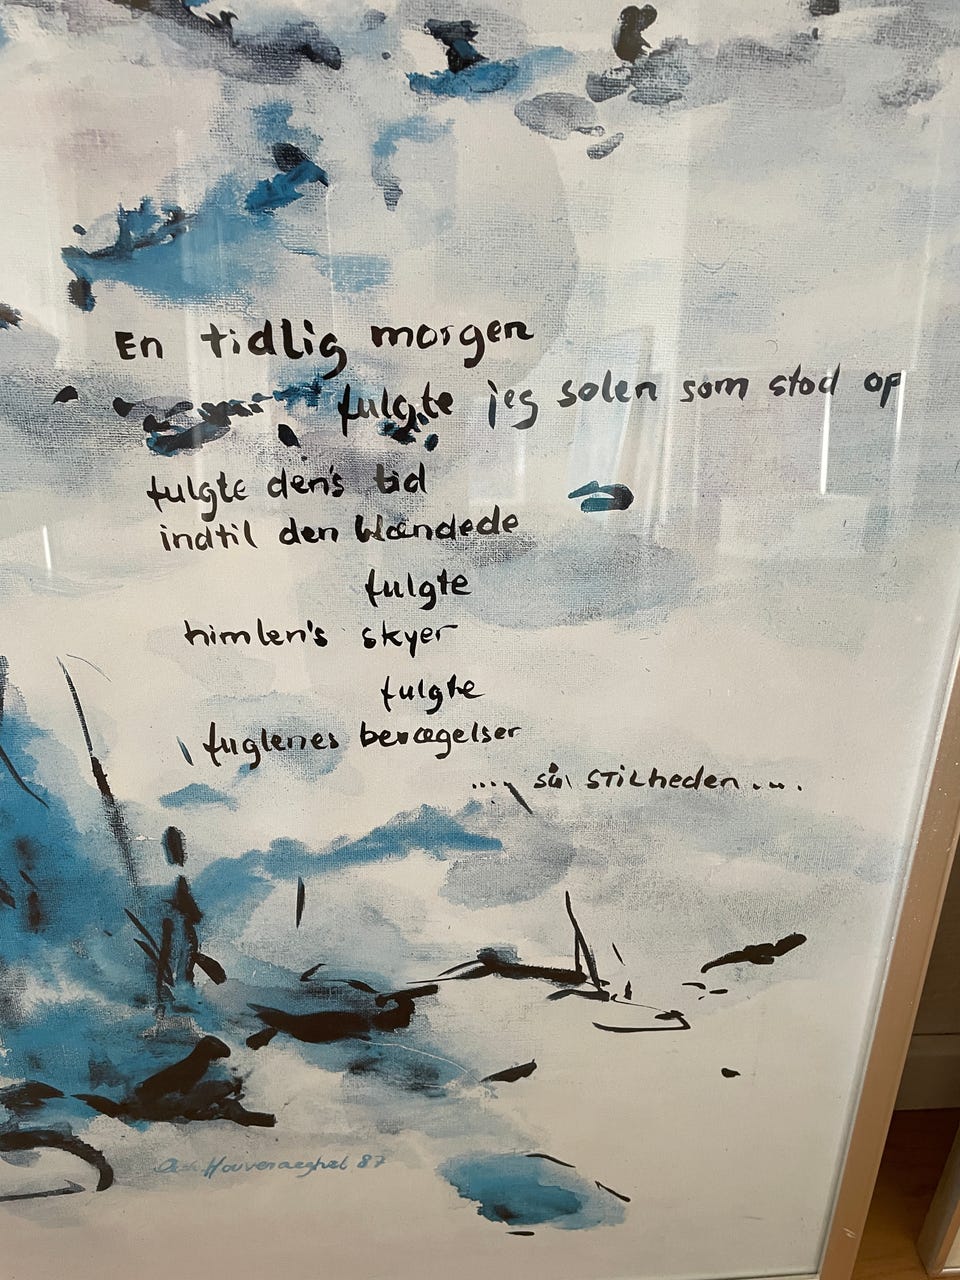 En tidlig morgen
fulgte jeg solen som stod op
fulgte den's tid
indtil den blændede
fulgte
himlen's skyer
fulgte
fuglenes bevægelser
.... så stilheden ....
Houvenaeghel 87